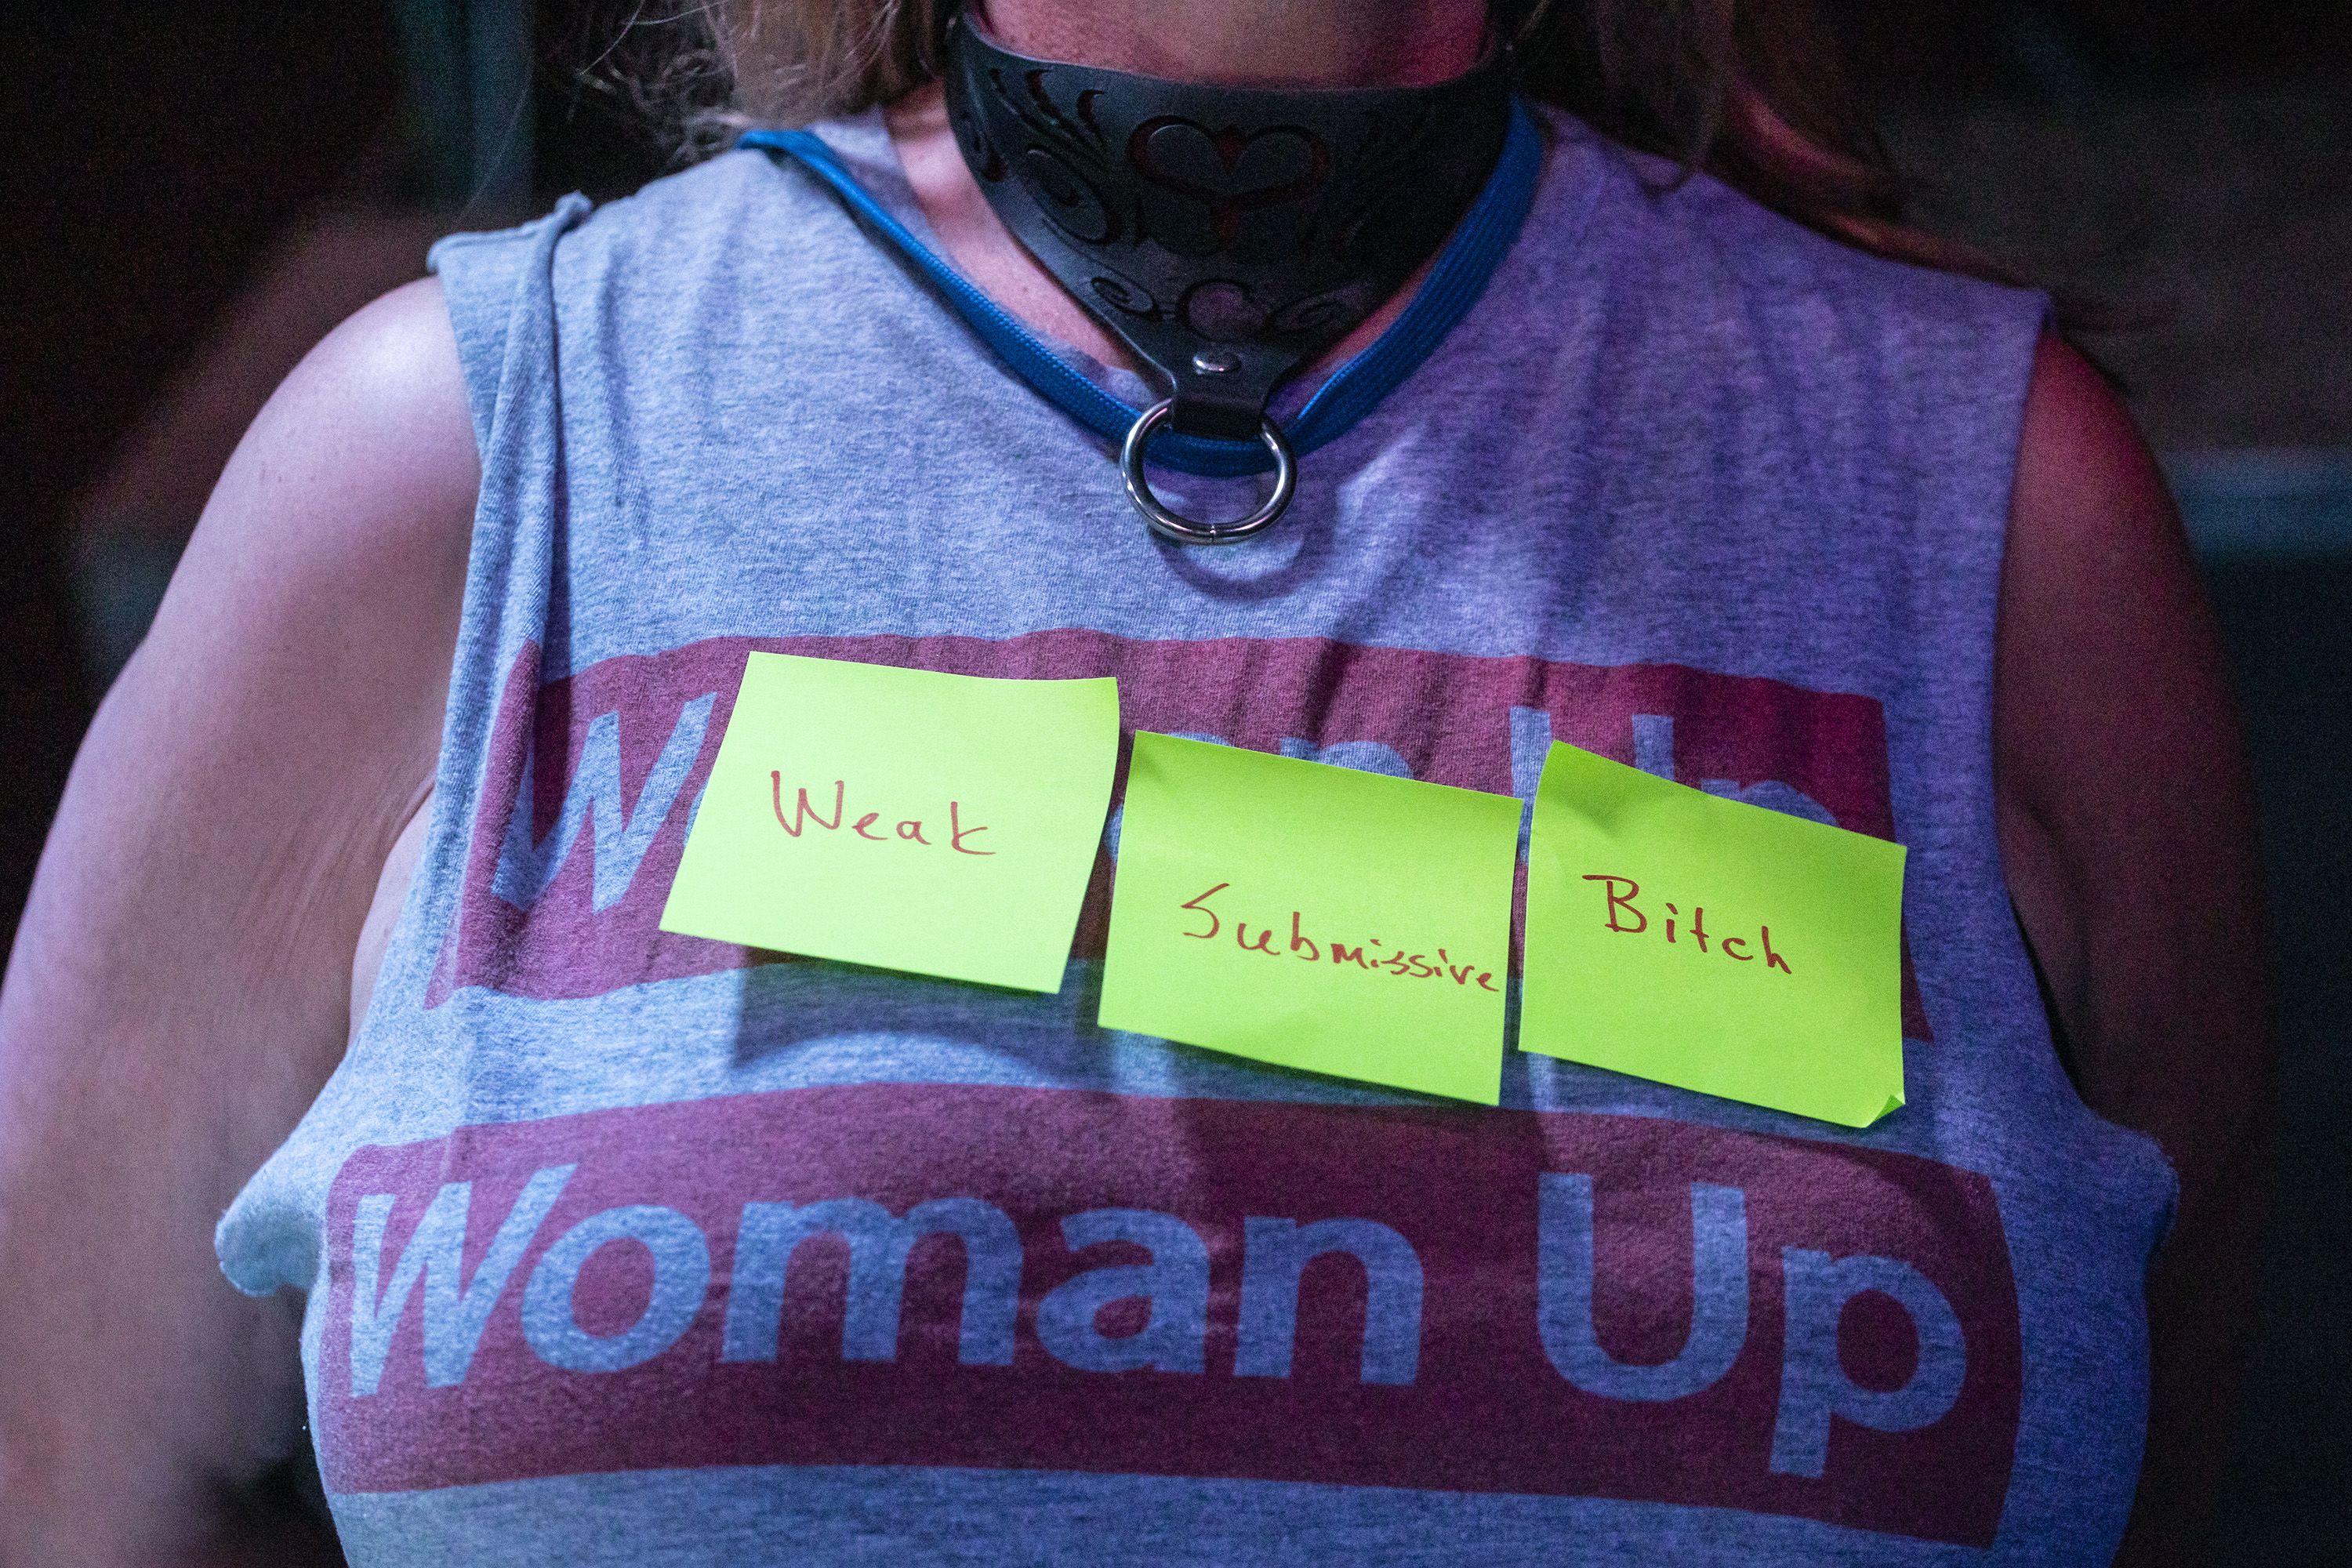 Woman Up
Weak
Submissive
Bitch
Woman Up